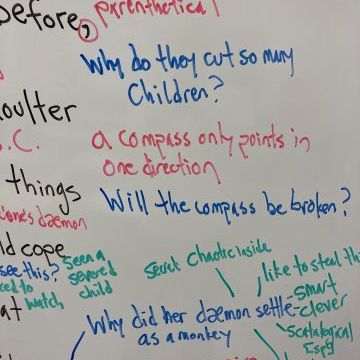 before, parenthetical
Why do they cut so many
Children?
oulter
.C.
a compass only points in
one direction
things
Will the compass be broken?
one's daemon
ld cope
see this?
seen a
severed
child
secret chaotic inside
like to steal thi
at
to watch,
Why did her daemon settle
as a monkey
-smart
-clever
scatalogical